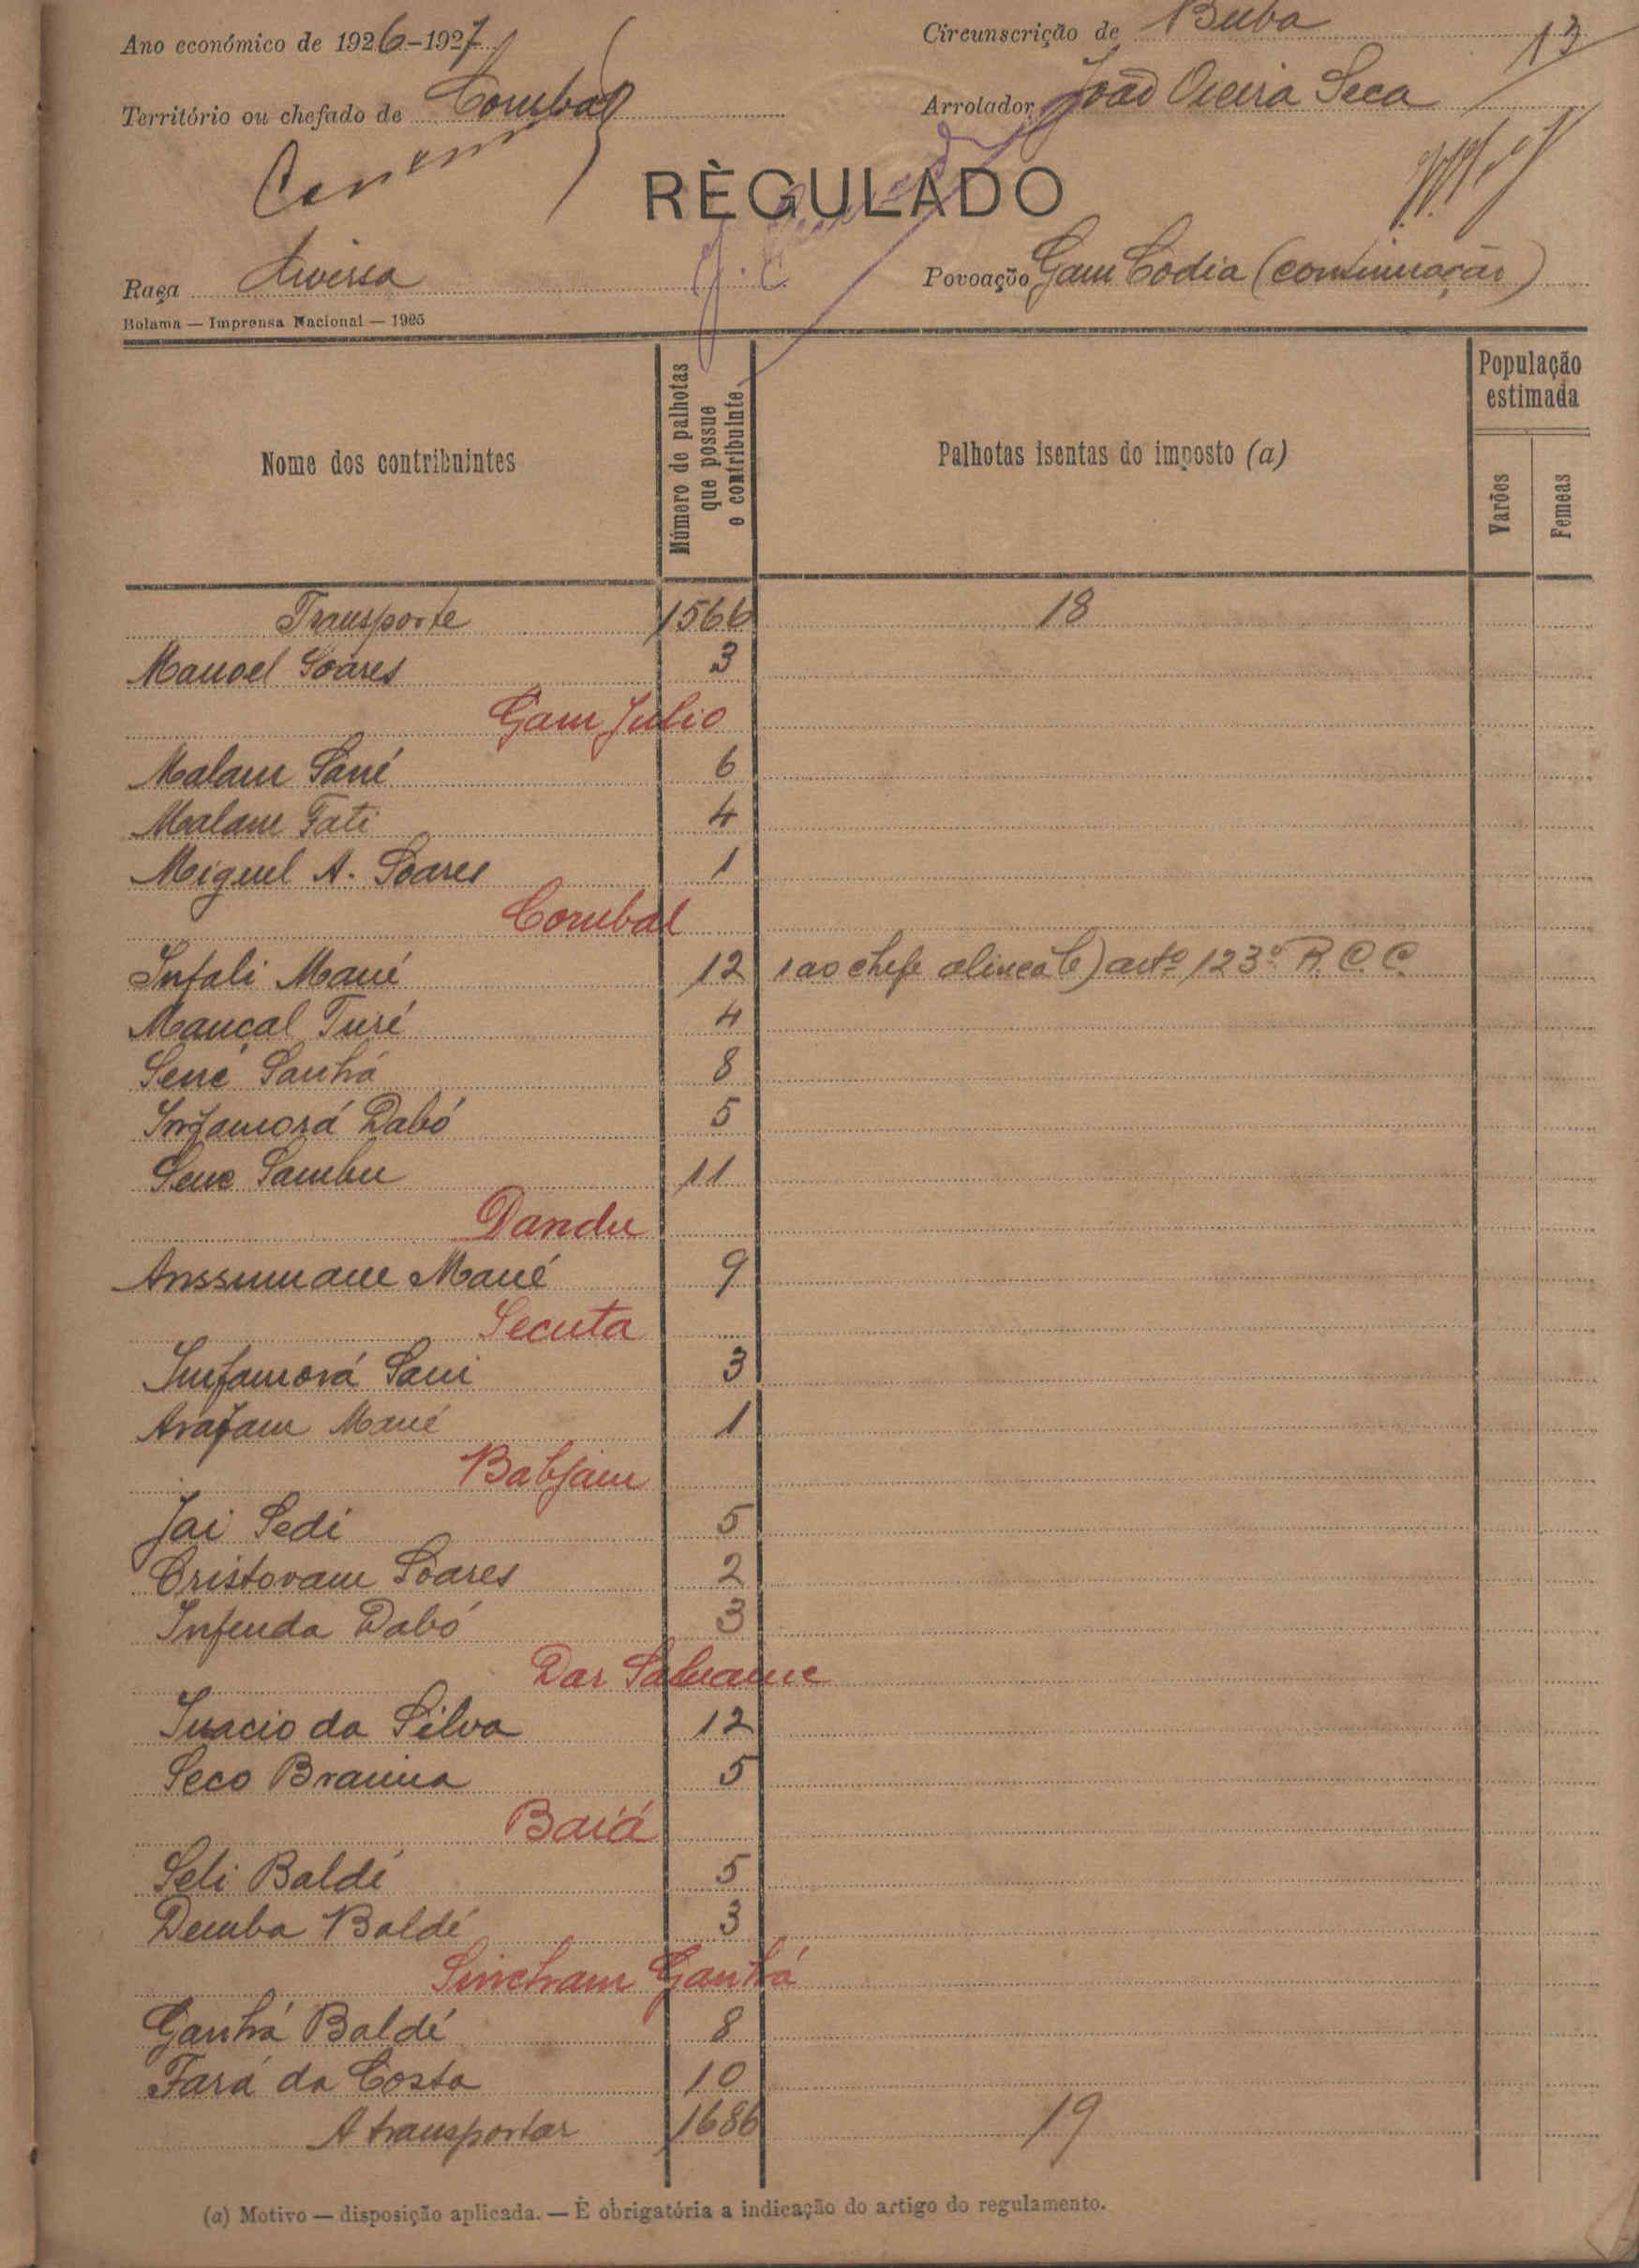 Ano económico de 1926-1927
Circunscrição de Buba
13
Território ou chefado de Corubal
Arrolador João Vieira Seca
RÈGULADO
Raça diversa
Povoação Gam Codia (continuação)
Bolama — Imprensa Nacional — 1925
Nome dos contribuintes
Número de palhotas que possue o contribuinte
Palhotas isentas do imposto (a)
População estimada
Varões
Femeas
Transporte 1566 18
Manoel Soares 3
Gam Julio
Malam Sané 6
Malam Fati 4
Miguel A. Soares 1
Corubal
Infali Mané 12 1 ao chefe alinea b) artº 123º R. C. C.
Mancal Turé 4
Sené Sanhá 8
Infamorá Dabó 5
Sene Sambu 11
Dandu
Anssumane Mané 9
Secuta
Infamorá Sani 3
Arafam Mané 1
Babjam
Jai Sedi 5
Cristovam Soares 2
Infenda Dabó 3
Dar Saluame
Inacio da Silva 12
Seco Braima 5
Baiá
Seli Baldé 5
Demba Baldé 3
Sincham Ganhá
Ganhá Baldé 8
Fará da Costa 10
A transportar 1686 19
(a) Motivo — disposição aplicada. — É obrigatória a indicação do artigo do regulamento.